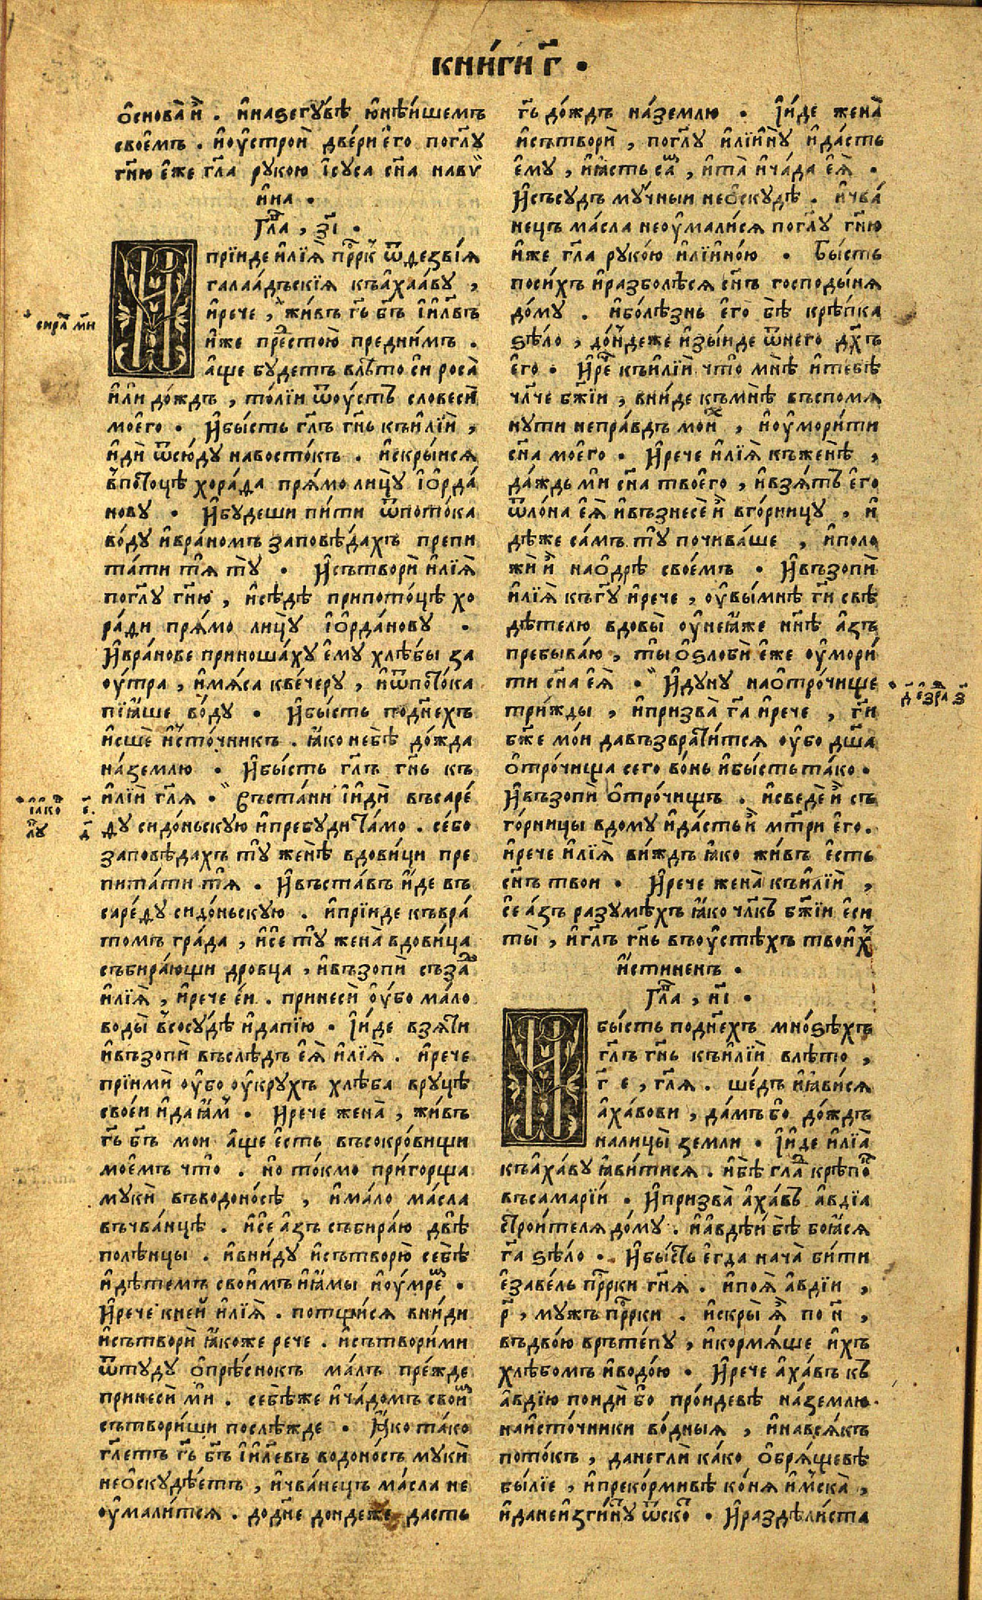 кни́ги г҃ ·
ѡ҆снова̀ и҆̀ . и҆ наѕегꙋ́бѣ ю҆нѣ́йшемъ
свое́мъ . и҆ оу҆строѝ две́ри є҆го̀ поглꙋ
гн҃ю є҆́же гл҃а рꙋкою і҆сꙋса сн҃а навѵ
ина .
Гла , з҃і .
И прїи́де и҆лїѧ̀ прⷪ҇ркъ ѿ дезвїѧ
галаа́дьскїѧ къ а҆хаа́вꙋ ,
и҆ речѐ , жи́въ гь҃ бг҃ъ і҆и҃лвъ
и҆́же престою̀ пред ни́мъ .
а҆́ще бꙋ́детъ в лѣ́то сѝ роса̀
и҆лѝ до́ждъ , то́лїи ѿ оу҆́стъ словесѝ
моего̀ . И҆ бы́сть гл҃ъ гн҃ь къ и҆лїѝ ,
и҆дѝ ѿсю́дꙋ на восто́къ . и҆ скры́исѧ
в пото́цѣ хора́да прѧ́мо лицꙋ̀ і҆ѡ҆рда́
новꙋ . И҆ бꙋ́деши пи́ти ѿ пото́ка
во́дꙋ и҆ вра́номъ заповѣ́дахъ препи
та́ти тѧ̀ тꙋ̀ . И҆ сътворѝ и҆лїѧ̀
поглꙋ гн҃ю , и҆ сѣ́де при пото́цѣ хо
ра́ди прѧ́мо лицꙋ̀ і҆ѡ҆рда́новꙋ .
И҆ вра́нове приноша́хꙋ є҆мꙋ̀ хлѣ́бы за
оу́тра , и҆ мѧ́са к ве́черꙋ , и҆ ѿ пото́ка
пїꙗ́ше во́дꙋ . И҆ бы́сть по днехъ
и҆сшѐ и҆сто́чникъ . ꙗ҆́ко не бѣ̀ до́жда
на́ землю . И҆ бы́сть гл҃ъ гн҃ь къ
и҆лїѝ гл҃ѧ . Въста́ни и҆ и҆дѝ въ саре́
дꙋ сидо́ньскꙋю и҆ пребꙋ́ди та́мо . се́ бо
заповѣ́дахъ тꙋ̀ женѣ̀ вдови́ци пре
пита́ти тѧ̀ . И҆ въста́въ и҆́де въ
саре́дꙋ сидо́ньскꙋю . и҆ прїи́де къ вра
то́мъ гра́да , и҆ сѐ тꙋ̀ жена̀ вдови́ца
събира́ющи дро́вца , и҆ възопѝ съ за́
и҆лїѧ̀ , и҆ речѐ е́и . принесѝ оу҆́бо ма́ло
воды̀ в сосꙋ́дѣ и҆ да пїю̀ . І҆ и҆́де взѧ́ти
и҆ възопѝ въслѣ́дъ є҆ѧ̀ и҆лїѧ̀ . и҆ речѐ
прїимѝ оу҆́бо оу҆крꙋ́хъ хлѣ́ба в рꙋцѣ̀
свое́и и҆ да ꙗ҆́мъ . И҆ речѐ жена̀ , жи́въ
гь҃ бг҃ъ мои а҆́ще є҆́сть въ сокро́вищи
мое́мъ что̀ . но̀ то́кмо при́горща
мꙋкѝ въ водоно́сѣ , и҆ ма́ло ма́сла
въ чва́нцѣ . и҆ сѐ а҆́зъ събира́ю двѣ̀
полѣ́нцы . и҆ вни́дꙋ и҆ сътворю̀ себѣ̀
и҆ дѣ́темъ свои́мъ и҆ ꙗ҆́мы и҆ оу҆́мрем .
И҆ речѐ к ней и҆лїѧ̀ . потщи́сѧ вни́ди
и҆ сътворѝ ꙗ҆́коже рече . и҆ сътвори́ ми
ѿтꙋ́дꙋ ѡ҆прѣ́снокъ ма́лъ пре́жде
принесѝ мѝ . себѣ́же и҆ ча́домъ свои
сътвори́ши послѣ́жде . Ꙗ҆́ко та́ко
гл҃етъ гь҃ бг҃ъ і҆и҃левъ водоно́съ мꙋкѝ
не ѡ҆скꙋдѣ́етъ , и҆ чва́нецъ ма́сла не
оу҆мали́тсѧ . до дн҃е до́ндеже да́сть
гь҃ до́ждь на́ землю . І҆ и҆́де жена̀
и҆ сътворѝ , поглꙋ и҆лїинꙋ̀ и҆ да́сть
є҆мꙋ̀ , и҆ ꙗ҆́сть сам , и҆ та̀ и҆ ча́да є҆ѧ̀ .
И҆ съсꙋ́дъ мꙋ́чныи не ѡ҆скꙋдѣ̀ . и҆ чва́
нецъ ма́сла не оу҆мали́сѧ поглꙋ гн҃ю
и҆́же гл҃а рꙋко́ю и҆лїино́ю . Бы́сть
по си́хъ и҆ разболѣ́сѧ сн҃ъ господы́нѧ
до́мꙋ . и҆ болѣ́знь є҆го̀ бѣ̀ крѣ́пка
ѕѣло̀ , до́ндеже и҆зы́иде ѿ него̀ дх҃ъ
є҆го̀ . И҆ речѐ къ и҆лїѝ что̀ мнѣ̀ и҆ тебѣ̀
чл҃че бж҃їи , вни́де къ мнѣ̀ въспомѧ
нꙋ́ти непра́вдъ моих , и҆ оу҆мори́ти
сн҃а моего̀ . И҆ речѐ и҆лїѧ̀ къ женѣ̀ ,
да́ждь мѝ сн҃а твоего̀ , и҆ взѧ́тъ є҆го̀
ѿ ло́на є҆ѧ̀ и҆ възнесѐ и҆̀ в го́рницꙋ , и҆
дѣ́же са́мъ тꙋ̀ почива́ше , и҆ поло
жѝ и҆̀ на ѻ҆дрѣ̀ свое́мъ . И҆ възопѝ
и҆лїѧ̀ къ гꙋ҃ и҆ речѐ , оу҆вы̀ мнѣ̀ гѝ свѣ
дѣ́телю вдовы̀ оу҆ неꙗ҆́же нн҃ѣ а҆́зъ
пребыва́ю , ты̀ ѡ҆ѕло́би є҆́же оу҆мори́
ти сн҃а є҆ѧ̀ . И҆ дꙋнꙋ̀ на ѻ҆тро́чище
три́жды , и҆ призва̀ га҃ и҆ речѐ , гѝ
бж҃е мо́и да възврати́тсѧ оу҆́бо дш҃а
ѻ҆тро́чища сего̀ во́нь и҆ бы́сть та́ко .
И҆ възопѝ ѻ҆тро́чищъ . и҆ сведѐ и҆̀ съ
го́рницы в до́мꙋ и҆ да́сть и҆̀ мт҃ри є҆го̀ .
и҆ речѐ и҆лїѧ̀ ви́ждъ ꙗ҆́ко жи́въ є҆́сть
сн҃ъ твои . И҆ речѐ жена̀ къ и҆лїѝ ,
сѐ а҆́зъ разꙋмѣ́хъ ꙗ҆́ко чл҃къ бж҃їи є҆сѝ
ты̀ , и҆ гл҃ъ гн҃ь въ оу҆стѣ́хъ твои́х
и҆́стиненъ .
Гла , и҃і .
И бы́сть по днехъ мно́ѕѣхъ
гл҃ъ гн҃ь къ и҆лїѝ в лѣ́то ,
г҃ е , гл҃ѧ . ше́дъ и҆ ꙗ҆ви́сѧ
а҆ха́вови , да́мъ бо̀ до́ждъ
на лицы̀ землѝ . І҆ и҆́де и҆лїа̀
къ а҆ха́вꙋ ꙗ҆ви́тисѧ . и҆ бѣ̀ глад крѣ́пок
въ самарїи . И҆ призва̀ а҆ха́въ а҆вдїа̀
строи́телѧ до́мꙋ . и҆ а҆вде́и бѣ̀ боꙗ́сѧ
га҃ ѕѣло̀ . И҆ бы́сть є҆гда̀ нача̀ би́ти
є҆заве́ль прⷪ҇рки гн҃ѧ . и҆ поѧ̀ а҆вдїи ,
р҃ , мꙋ́жъ прⷪ҇рки . и҆ скры̀ ѧ҆̀ по н҃ ,
въ двою̀ врътепꙋ̀ , и҆ кормѧ́ше и҆́хъ
хлѣ́бомъ и҆ водо́ю . И҆ речѐ а҆ха́въ къ
а҆вдїю поидѝ бо̀ про́идевѣ на́ землю
на и҆сто́чники во́дныѧ , и҆ на всѧ́къ
пото́къ , да негли ка́ко ѡ҆брѧ́щевѣ
бы́лїе , и҆ прекормивѣ ко́нѧ и҆ мска̀ ,
и҆ да не и҆зги́нꙋт ѿ ското . И҆ раздѣли́ста